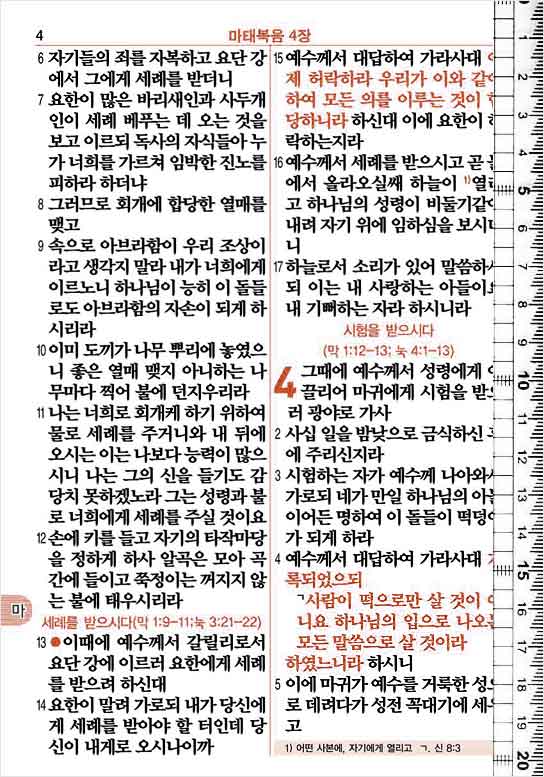 4
마태복음 4장
6 자기들의 죄를 자복하고 요단 강
에서 그에게 세례를 받더니
7 요한이 많은 바리새인과 사두개
인이 세례 베푸는 데 오는 것을
보고 이르되 독사의 자식들아 누
가 너희를 가르쳐 임박한 진노를
피하라 하더냐
8 그러므로 회개에 합당한 열매를
맺고
9 속으로 아브라함이 우리 조상이
라고 생각지 말라 내가 너희에게
이르노니 하나님이 능히 이 돌들
로도 아브라함의 자손이 되게 하
시리라
10 이미 도끼가 나무 뿌리에 놓였으
니 좋은 열매 맺지 아니하는 나
무마다 찍어 불에 던지우리라
11 나는 너희로 회개케 하기 위하여
물로 세례를 주거니와 내 뒤에
오시는 이는 나보다 능력이 많으
시니 나는 그의 신을 들기도 감
당치 못하겠노라 그는 성령과 불
로 너희에게 세례를 주실 것이요
12 손에 키를 들고 자기의 타작마당
을 정하게 하사 알곡은 모아 곡
간에 들이고 쭉정이는 꺼지지 않
는 불에 태우시리라
마
세례를 받으시다(막 1:9-11;눅 3:21-22)
13 ●이때에 예수께서 갈릴리로서
요단 강에 이르러 요한에게 세례
를 받으려 하신대
14 요한이 말려 가로되 내가 당신에
게 세례를 받아야 할 터인데 당
신이 내게로 오시나이까
15 예수께서 대답하여 가라사대
제 허락하라 우리가 이와
하여 모든 의를 이루는 것이
당하니라 하신대 이에 요한이
락하는지라
16 예수께서 세례를 받으시고 곧
에서 올라오실쌔 하늘이 1)
고 하나님의 성령이 비둘기같이
내려 자기 위에 임하심을 보시
니
17 하늘로서 소리가 있어 말씀하
되 이는 내 사랑하는 아들이
내 기뻐하는 자라 하시니라
시험을 받으시다
(막 1:12-13; 눅 4:1-13)
4 그때에 예수께서 성령에게
끌리어 마귀에게 시험을
러 광야로 가사
2 사십 일을 밤낮으로 금식하신
에 주리신지라
3 시험하는 자가 예수께 나아와
가로되 네가 만일 하나님의
이어든 명하여 이 돌들이
가 되게 하라
4 예수께서 대답하여 가라사대
록되었으되
ㄱ사람이 떡으로만 살 것이
니요 하나님의 입으로
모든 말씀으로 살 것이라
하였느니라 하시니
5 이에 마귀가 예수를 거룩한
로 데려다가 성전 꼭대기에
고
1) 어떤 사본에, 자기에게 열리고 ㄱ. 신 8:3
1
2
3
4
5
6
7
8
9
10
11
12
13
14
15
16
17
18
19
20